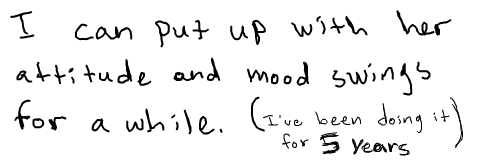 I can put up with her
attitude and mood swings
for a while. (I've been doing it
for 5 years)